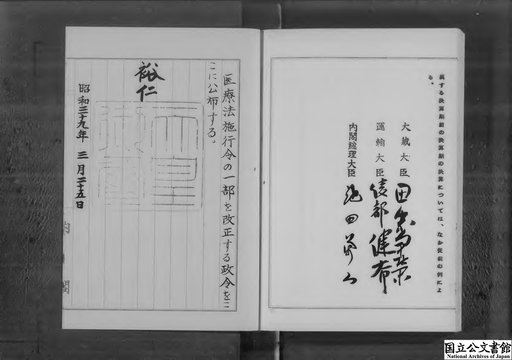 属する決算期前の決算期の決算については、なお従前の例によ
る。
大蔵大臣 田中角榮
運輸大臣 綾部健太郎
内閣総理大臣 池田勇人
医療法施行令の一部を改正する政令をこ
こに公布する。
裕仁
天皇
御璽
昭和三十九年 三月二十五日
内閣
国立公文書館
National Archives of Japan